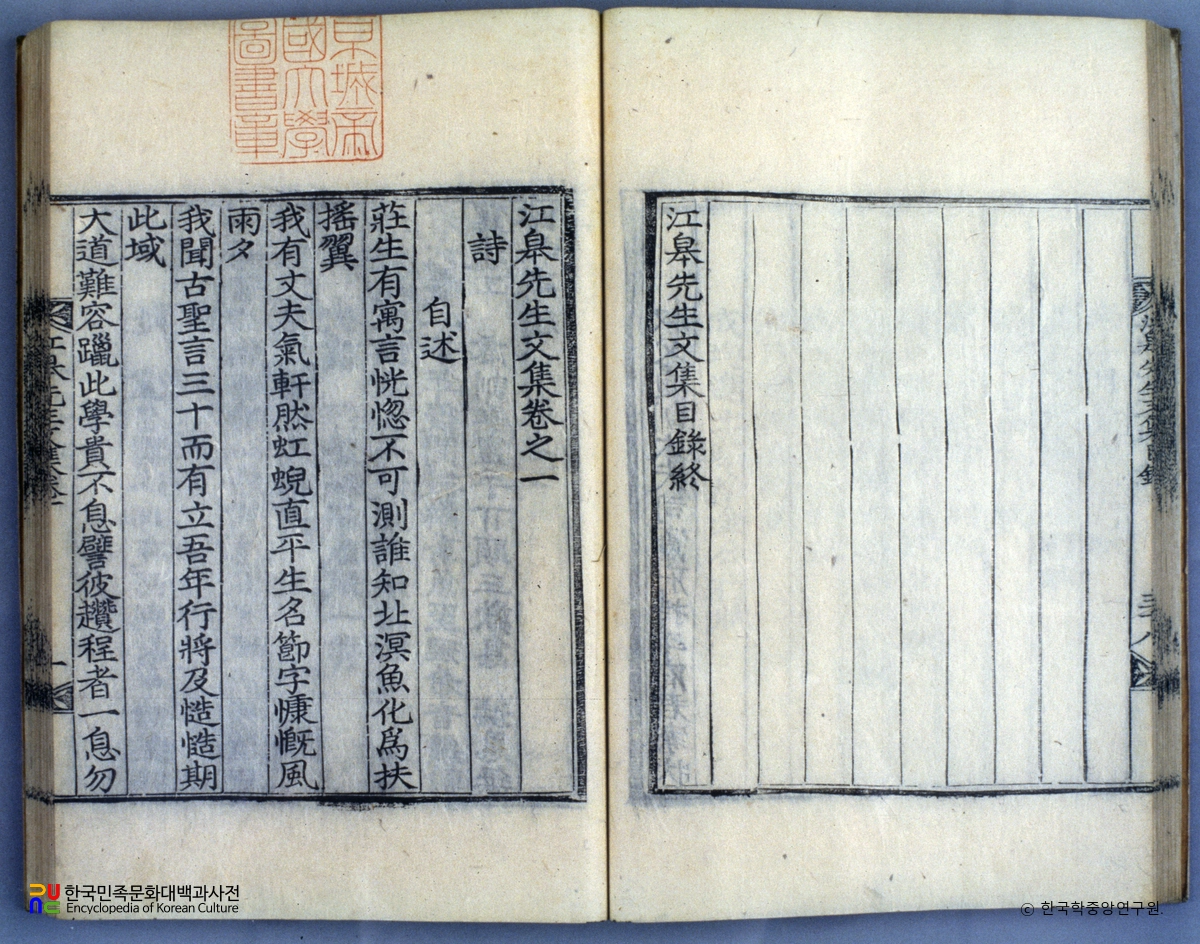 江皋先生文集目錄終
京城帝
國大學
圖書章
江皋先生文集卷之一
詩
自述
莊生有寓言恍惚不可測誰知北溟魚化爲扶
搖翼
我有丈夫氣軒然虹蜺直平生名節字慷慨風
雨夕
我聞古聖言三十而有立吾年行將及慥慥期
此域
大道難容躐此學貴不息譬彼趲程者一息勿
江皋先生文集卷一
一
한국민족문화대백과사전
Encyclopedia of Korean Culture
© 한국학중앙연구원.